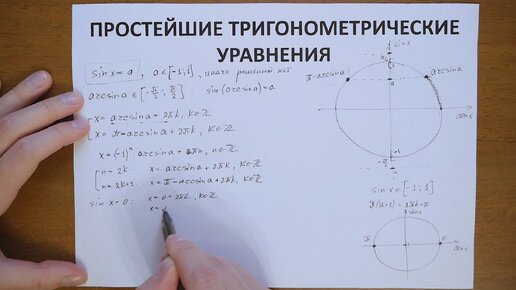 ПРОСТЕЙШИЕ ТРИГОНОМЕТРИЧЕСКИЕ
УРАВНЕНИЯ
sin x = a, a∈[-1;1], иначе решений нет
arcsin a ∈ [-π/2; π/2] : sin(arcsin a) = a
x = arcsin a + 2πk, k∈ℤ
x = π - arcsin a + 2πk, k∈ℤ
x = (-1)ⁿ arcsin a + πn, n∈ℤ
n = 2k: x = arcsin a + 2πk, k∈ℤ
n = 2k+1: x = π - arcsin a + 2πk, k∈ℤ
sin x = 0: x = 0 + 2πk, k∈ℤ
x =
sin x
1
π - arcsin a
arcsin a
a
cos x
-1
sin x ∈ [-1;1]
π(2k+1) = 2πk + π
sin x
π
0
cos x